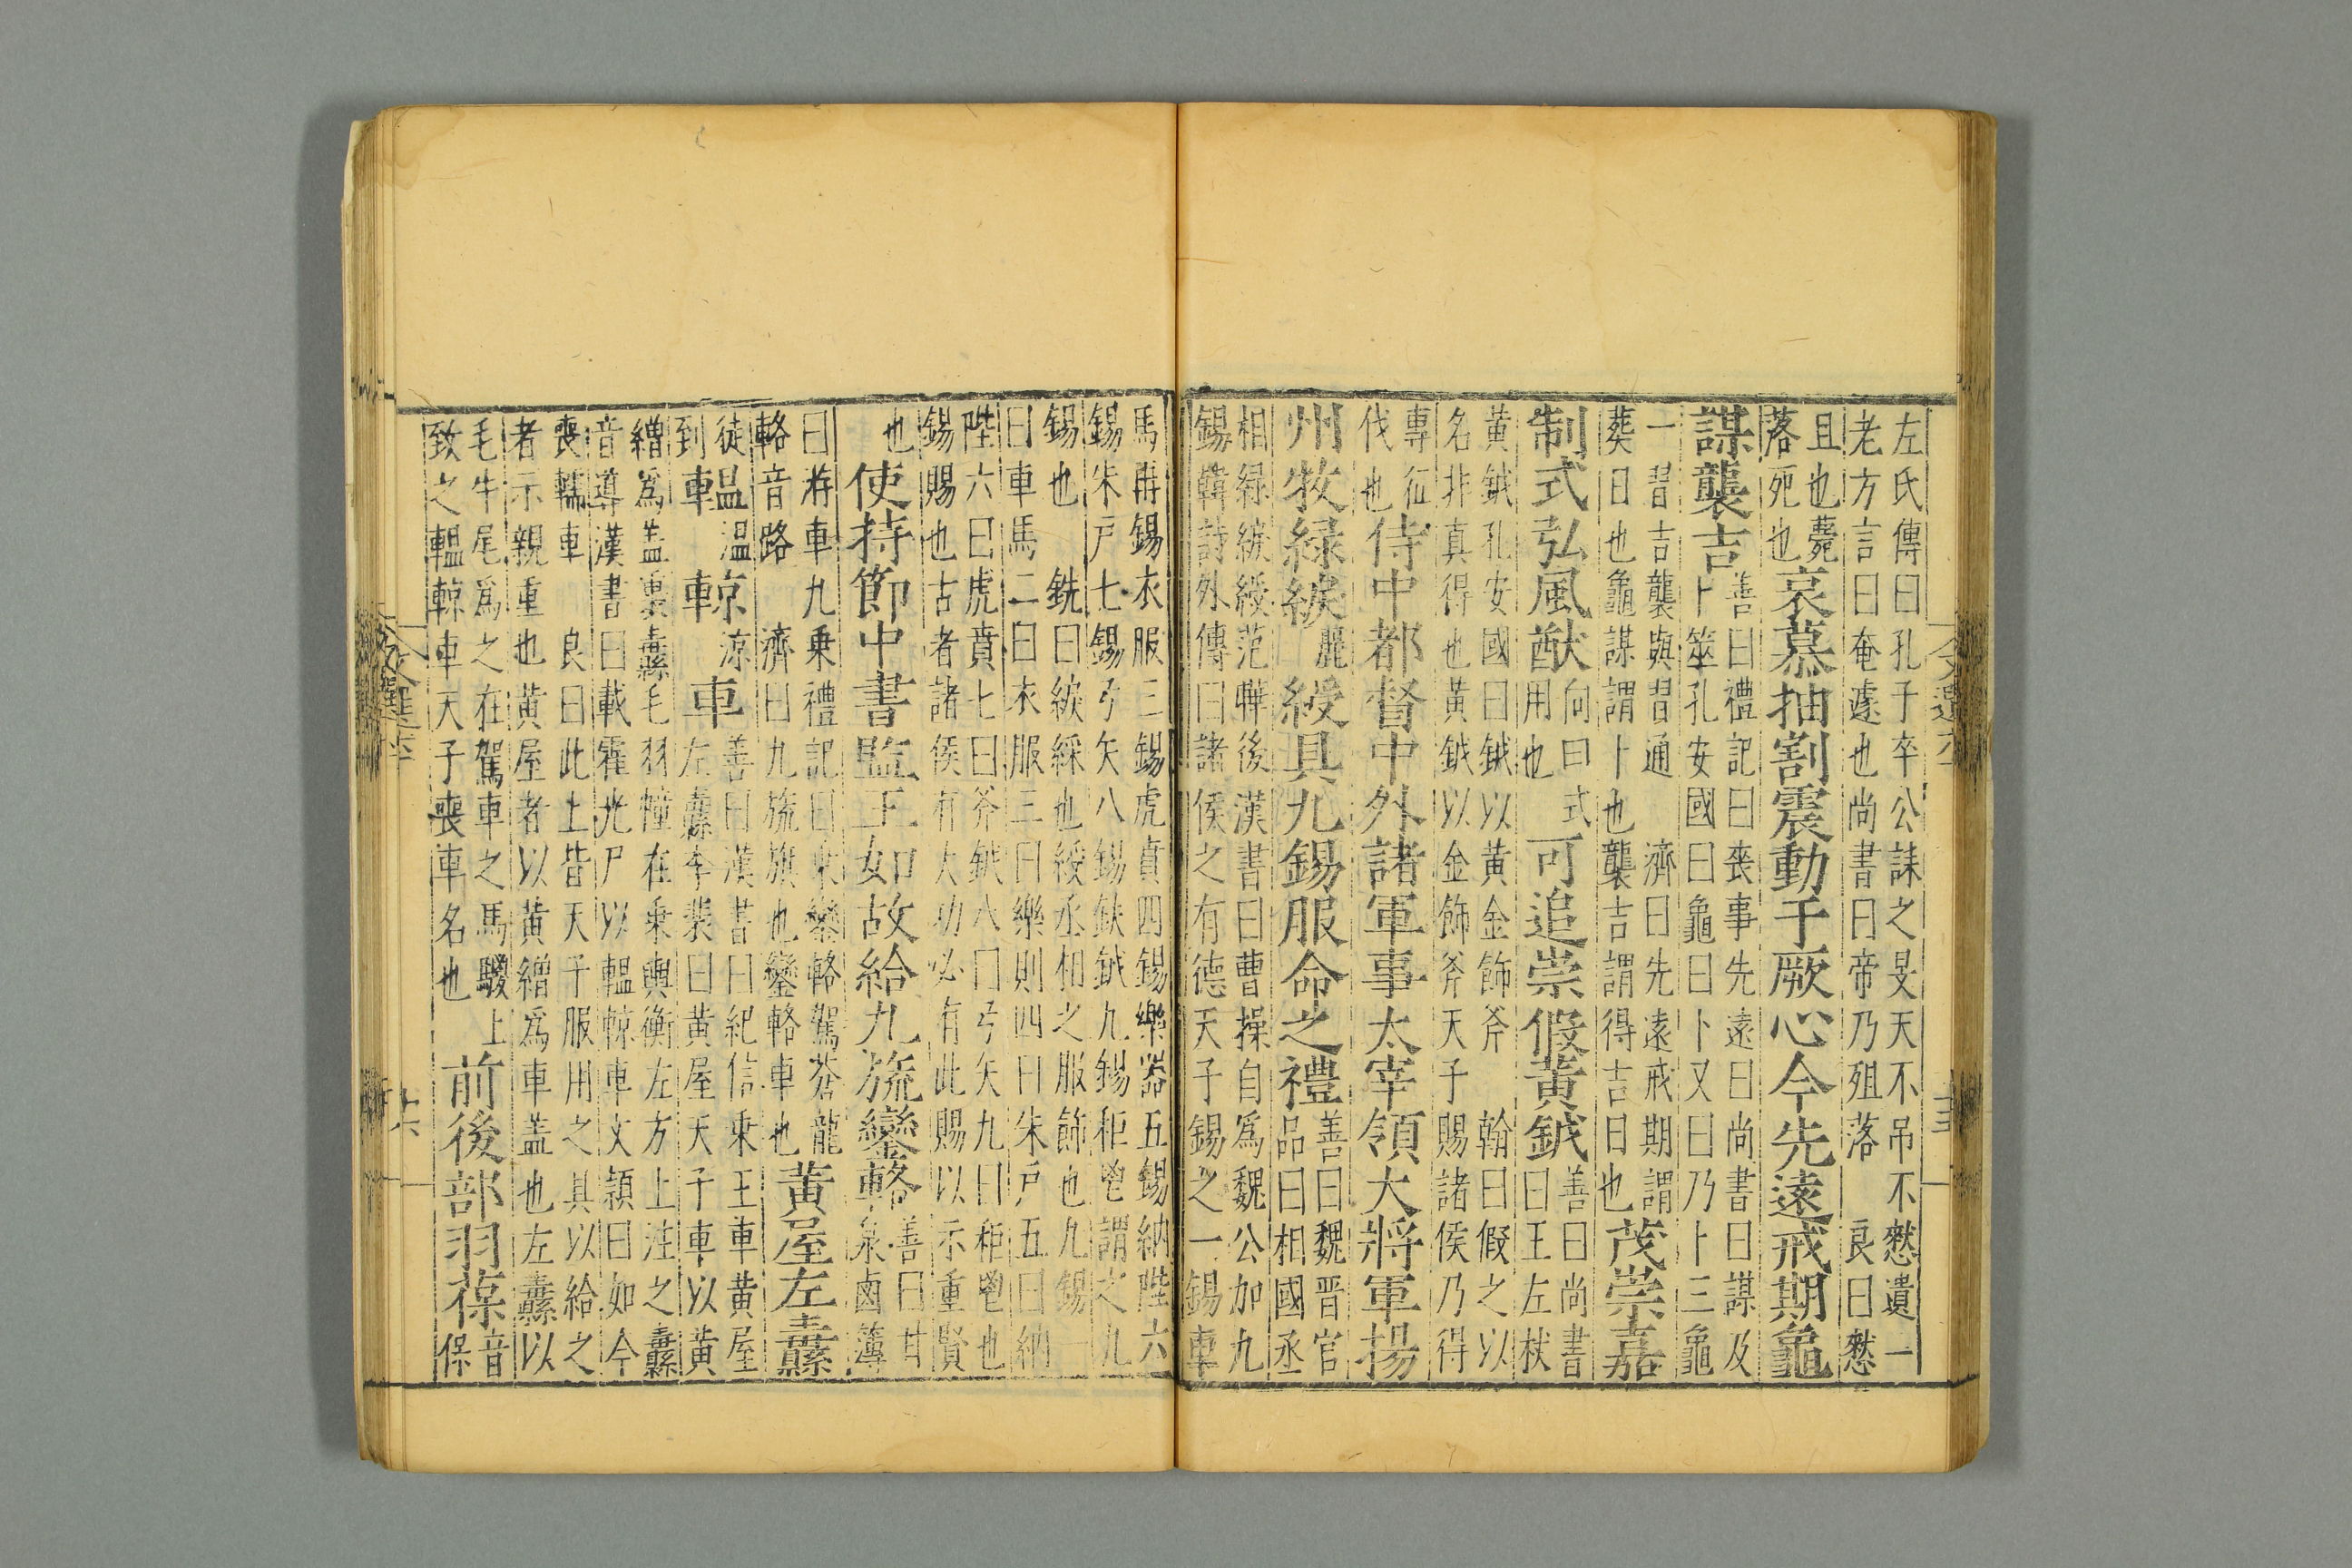 左氏傳曰孔子卒公誄之旻天不弔不憖遺一
老方言曰奄遽也尚書曰帝乃殂落 良曰憖
且也薨
落死也
哀慕抽割震動于厥心今先遠戒期龜
謀襲吉
善曰禮記曰喪事先遠曰尚書曰謀及
卜筮孔安國曰龜曰卜又曰乃卜三龜
一習吉襲與習通 濟曰先遠戒期謂
葬日也龜謀謂卜也襲吉謂得吉日也
茂崇嘉
制式弘風猷
向曰式
用也
可追崇假黃鉞
善曰尚書
曰王左杖
黃鉞孔安國曰鉞以黃金飾斧 翰曰假之以
名非真得也黃鉞以金飾斧天子賜諸侯乃得
專征
伐也
侍中都督中外諸軍事太宰領大將軍揚
州牧緑綟
麗
綬具九錫服命之禮
善曰魏晉官
品曰相國丞
相緑綟綬范曄後漢書曰曹操自爲魏公加九
錫韓詩外傳曰諸侯之有德天子錫之一錫車
馬再錫衣服三錫虎賁四錫樂器五錫納陛六
錫朱戶七錫弓矢八錫鈇鉞九錫秬鬯謂之九
錫也 銑曰綟綵也綬丞相之服飾也九錫一
曰車馬二曰衣服三曰樂則四曰朱戶五曰納
陛六曰虎賁七曰斧鉞八曰弓矢九曰秬鬯也
錫賜也古者諸侯有大功必有此賜以示重賢
也
使持節中書監王如故給九旒鑾輅
善曰甘
泉鹵簿
曰游車九乗禮記曰乗鑾輅駕蒼龍
輅音路 濟曰九旒旗也鑾輅車也
黃屋左纛
徒
到
轀
溫
輬
凉
車
善曰漢書曰紀信乗王車黃屋
左纛李斐曰黃屋天子車以黃
繒爲蓋裏纛毛羽幢在乗輿衡左方上注之纛
音導漢書曰載霍光尸以轀輬車文頴曰如今
喪轜車 良曰此上皆天子服用之具以給之
者示親重也黃屋者以黃繒爲車蓋也左纛以
毛牛尾爲之在駕車之馬騣上
致之轀輬車天子喪車名也
前後部羽葆
音
保